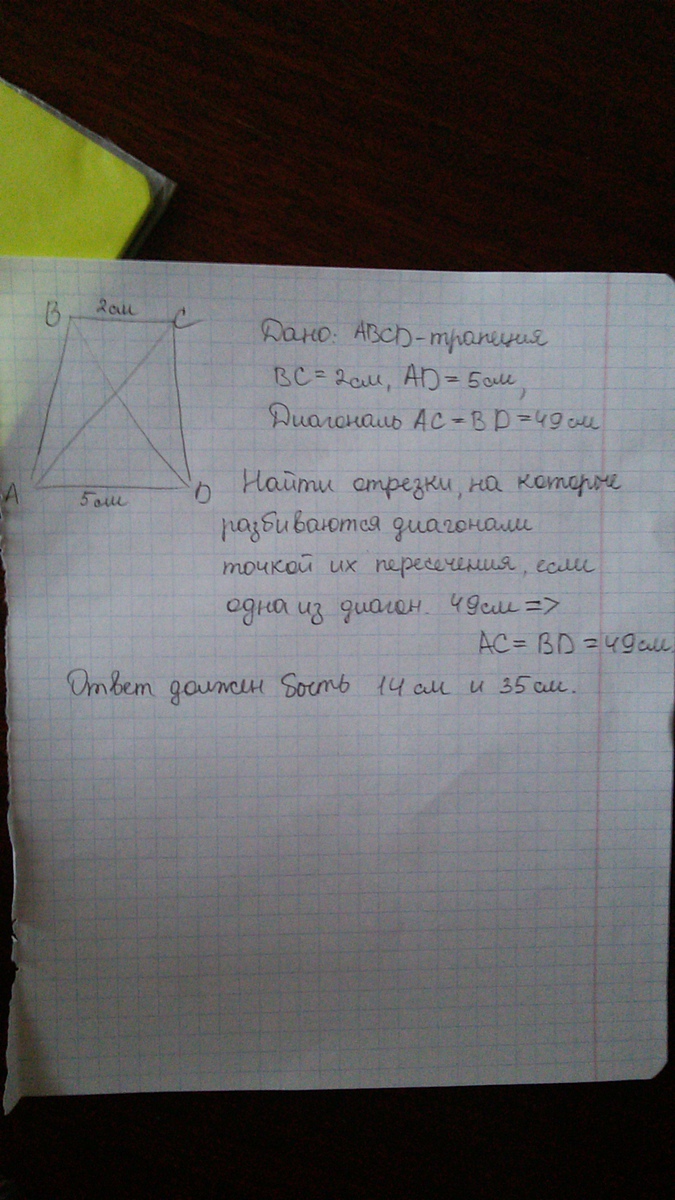 B 2см C
Дано: ABCD-трапеция
BC = 2см, AD = 5см,
Диагональ AC = BD = 49см
A 5см D
Найти отрезки, на которые
разбиваются диагонали
точкой их пересечения, если
одна из диагон. 49см =>
AC = BD = 49см
Ответ должен быть 14 см и 35 см.